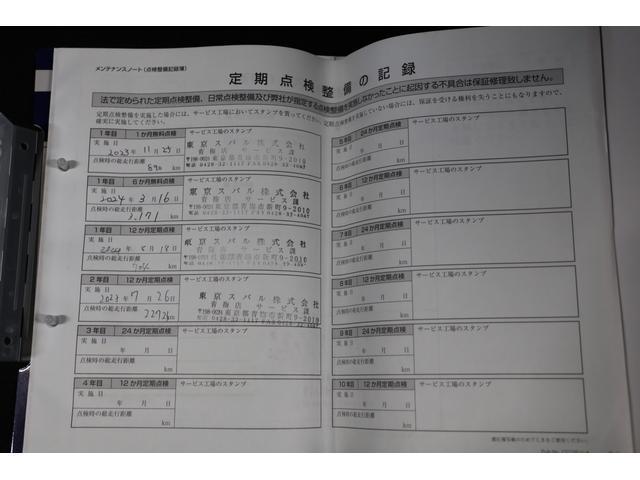 メンテナンスノート（点検整備記録簿）
定期点検整備の記録
法で定められた定期点検整備、日常点検整備及び弊社が指定する点検整備を実施しなかったことに起因する不具合は保証修理致しません。
定期点検整備を実施した場合には、サービス工場においてスタンプを貰ってください。定期
していない場合には、保証を受ける権利を失うことにもなりますので、
1年目 1か月無料点検 サービス工場のスタンプ
実施日
2023年11月25日
点検時の総走行距離
km
東京スバル株式会社
青梅店 サービス課
〒198-0021 東京都青梅市新町9-2010
1年目 6か月無料点検 サービス工場のスタンプ
実施日
2024年3月16日
点検時の総走行距離
2,171 km
東京スバル株式会社
青梅店 サービス課
〒198-0021 東京都青梅市新町9-2010
1年目 12か月定期点検 サービス工場のスタンプ
実施日
年 月18日
点検時の総走行距離
km
東京スバル株式会社
青梅店 サービス課
2年目 12か月定期点検 サービス工場のスタンプ
実施日
年7月26日
点検時の総走行距離
km
東京スバル株式会社
青梅店 サービス課
〒198-0021 東京都青梅市新町9-2010
3年目 24か月定期点検 サービス工場のスタンプ
実施日
年 月 日
点検時の総走行距離
km
4年目 12か月定期点検 サービス工場のスタンプ
実施日
年 月 日
点検時の総走行距離
km
5年目 24か月定期点検 サービス工場のスタンプ
実施日
年 月 日
点検時の総走行距離
km
6年目 12か月定期点検 サービス工場のスタンプ
実施日
年 月 日
点検時の総走行距離
km
7年目 24か月定期点検 サービス工場のスタンプ
実施日
年 月 日
点検時の総走行距離
km
8年目 12か月定期点検 サービス工場のスタンプ
実施日
年 月 日
点検時の総走行距離
km
9年目 24か月定期点検 サービス工場のスタンプ
実施日
年 月 日
点検時の総走行距離
km
10年目 12か月定期点検 サービス工場のスタンプ
実施日
年 月 日
点検時の総走行距離
km